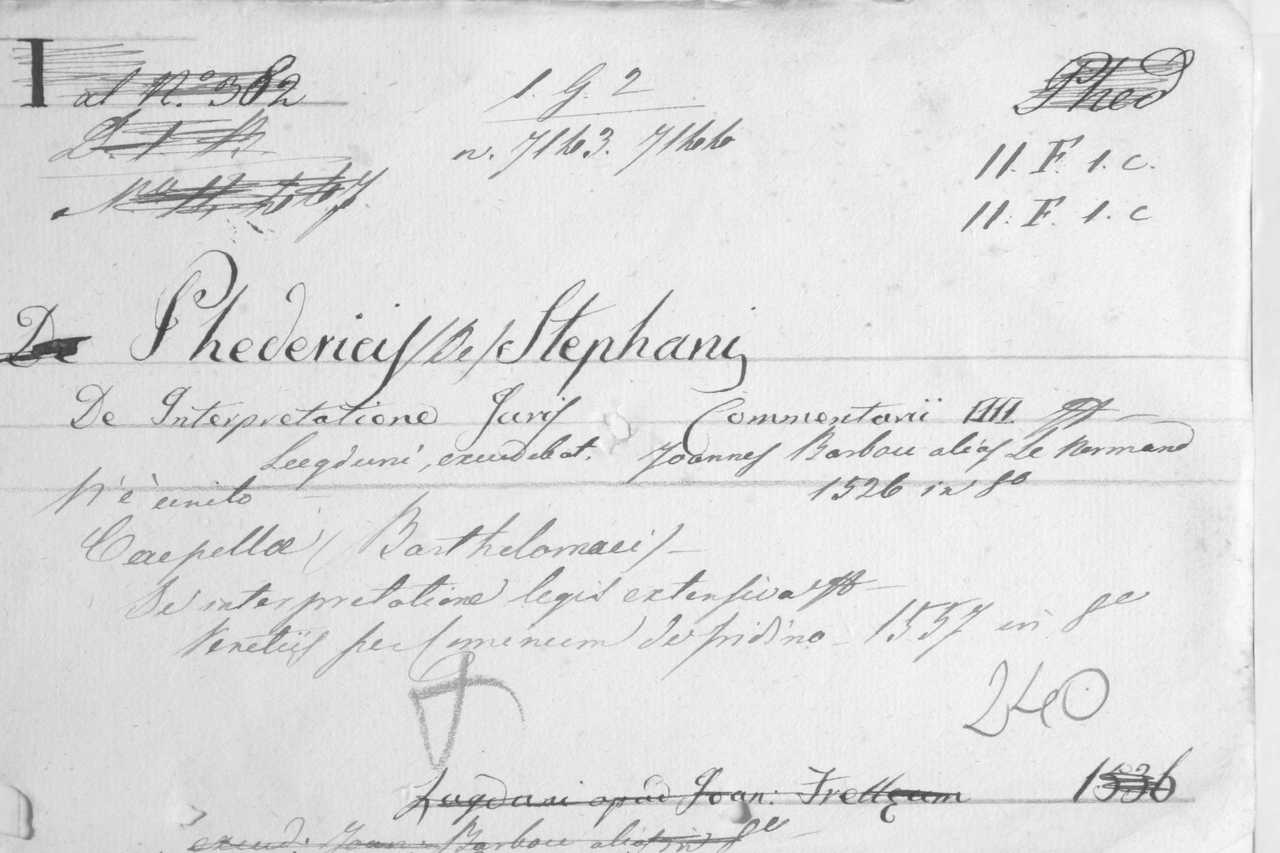 I al N.º 362 1. G. 2 Phed
n. 7163. 7166 11. F. 1. c.
11. F. 1. c
De Phedericis (De) Stephani
De Interpretatione Juris Commentarii IIII
Lugduni, excudebat. Joannes Barbou aliàs Le Normand
N' è unito 1526 in 8º
Capellae (Barthelomaei)
De interpretatione legis extensiva
Venetiis per Cominum de Tridino 1557 in 8º
240
Lugduni apud Joan: Frellzum 1536
excud. Joan. Barbou alias in 8º